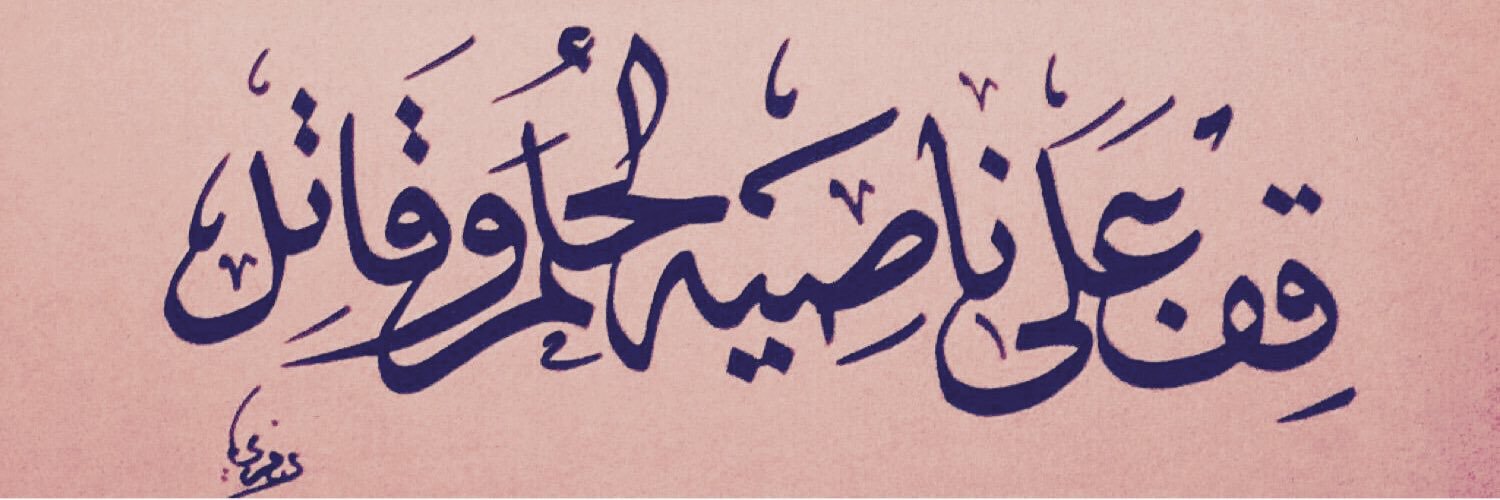 قِفْ عَلَى نَاصِيَةِ الحُلْمِ وَقَاتِلْ